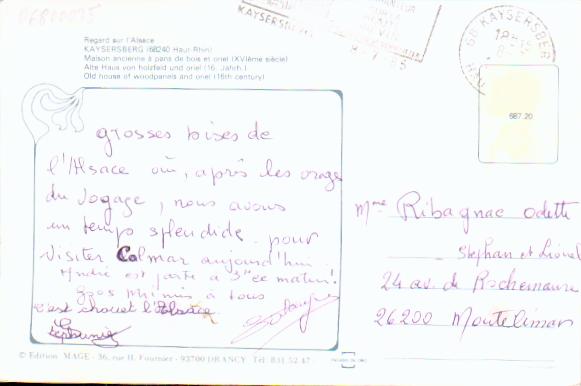 06800075
KAYSERSBERG
68 KAYSERSBERG
Regard sur l'Alsace
KAYSERSBERG (68240 Haut-Rhin)
Maison ancienne à pans de bois et oriel (XVIème siècle)
Alte Haus von holzfeld und oriel (16. Jahrh.)
Old house of woodpanels and oriel (16th century)
687.20
grosses bises de
l'Alsace où, après les orages
du voyage, nous avons
un temps splendide pour
visiter Colmar aujourd'hui.
André est parti à ce matin!
gros mimis à tous
c'est chouet l'Alsace
Mme Ribagnac Odette
Stephan et Lionel
24 av de Rochemaure
26200 Montelimar
© Edition MAGE - 36, rue H. Fournier - 93700 DRANCY Tél. 831 52 47